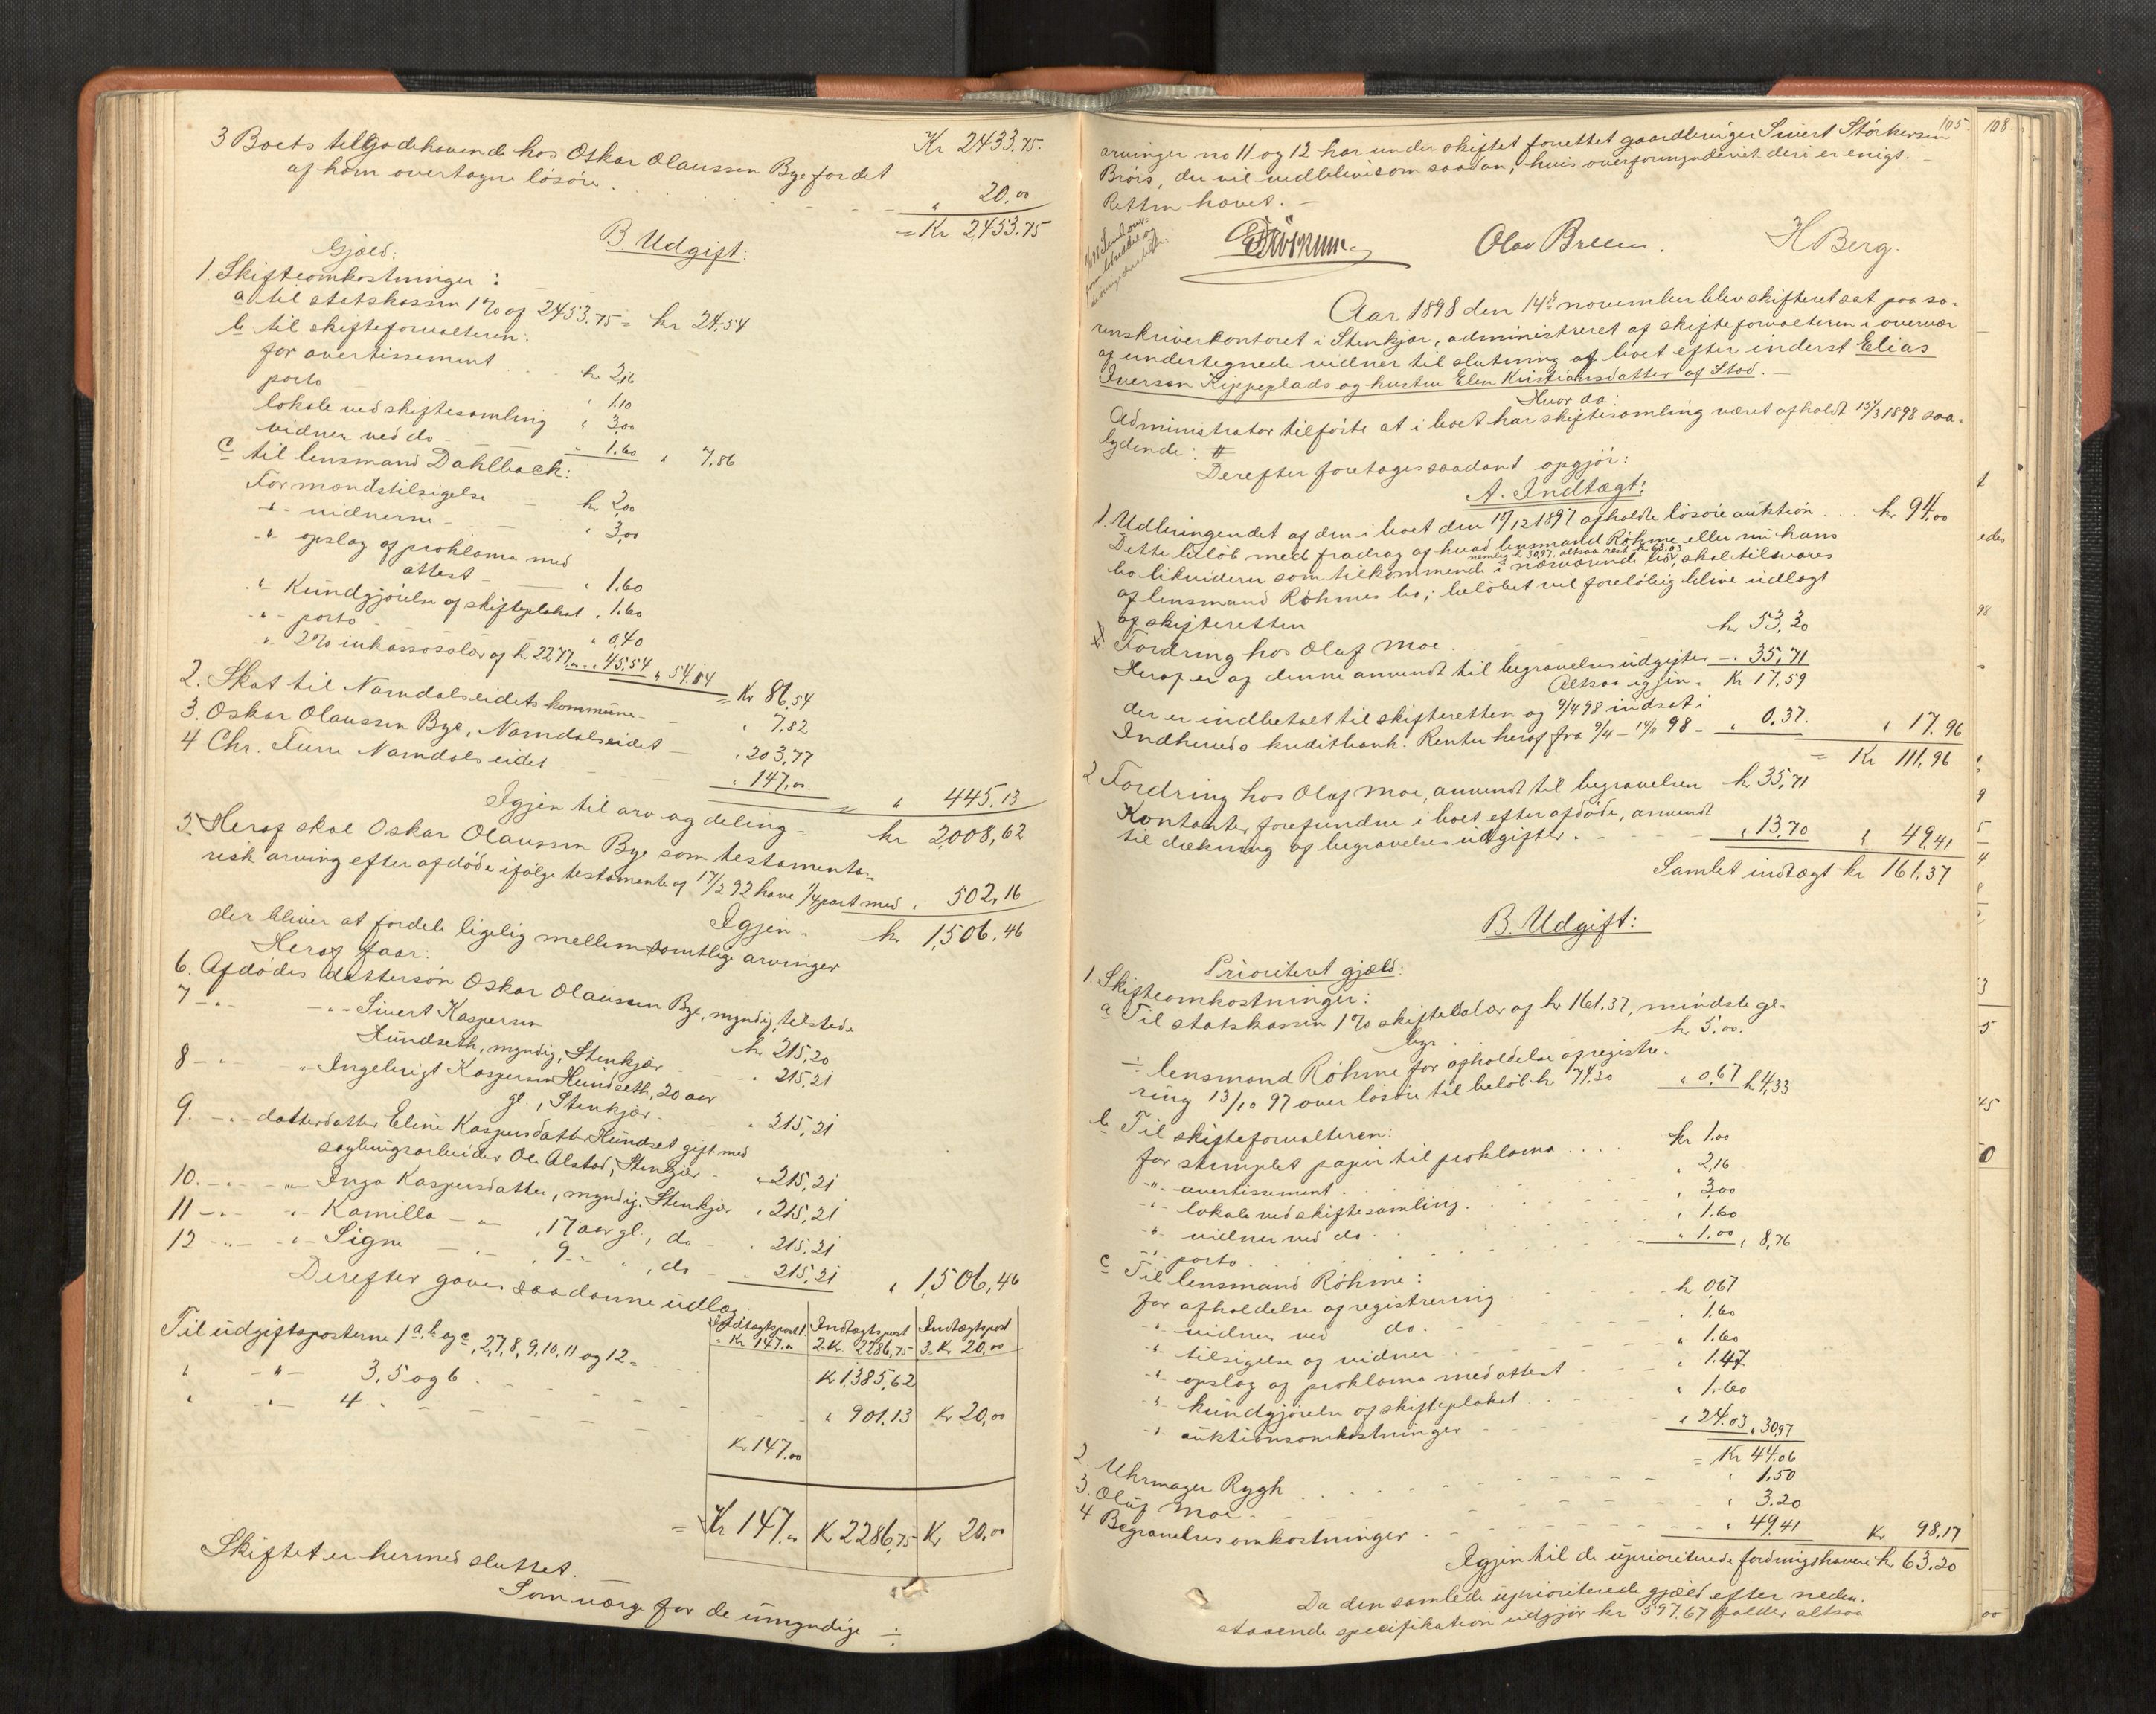 Kr 2433.75.
3 Boets tilgodehavende hos Oskar Olaussen Bye for det
af ham overtagne løsøre . . . " 20,00
= Kr 2453.75
B Udgift:
Gjæld:
1. Skifteomkostninger :
a til statskassen 1% af 2453.75 = kr 24,54
b til skifteforvalteren:
for avertissement kr 2,16
porto " 1.10
lokale ved skiftesamling " 3,00
vidner ved do " 1.60 " 7,86
c til lensmand Dahlback:
For mændstilsigelse kr 2,00
-"- vidnerne - " 3,00
-"- opslag af proklama med
attest - " 1.60
-"- Kundgjørelse af skifteplakat " 1.60
-"- porto " 0,40
-"- 2% inkassosalær af kr 2277,00 " 45.54 " 54,14 = Kr 86,54
2. Skat til Namdalseidets kommune - " 7,82
3. Oskar Olaussen Bye, Namdalseidet - " 203,77
4 Chr. Furre Namdalseidet - " 147,00. = " 445,13
Igjen til arv og deling = kr 2,008,62
5. Heraf skal Oskar Olaussen Bye som testamenta-
risk arving efter afdøde ifølge testamente af 17/2 92 have 1/4 part med " 502,16
Igjen = kr 1,506,46
der bliver at fordele ligelig mellem samtlige arvinger
Heraf faar:
6. Afdødes dattersøn Oskar Olaussen Bye, myndig, tilstede kr 215,20
7 -"- -"- Sivert Kaspersen
Hundseth, myndig, Stenkjær - " 215,21
8 -"- " Ingebrigt Kaspersen Hundseth, 20 aar
gl., Stenkjær - " 215,21
9. -"- datterdatter Eline Kaspersdatter Hundset gift med
sagbrugsarbeider Ole Alstad, Stenkjær - " 215,21
10. -"- -"- Inga Kaspersdatter, myndig, Stenkjær " 215,21
11 -"- -"- Kamilla -"- , 17 aar gl., do " 215,21
12 -"- -"- Signe -"- , 9 -"- " , do " 215,21 " 1,506,46
Derefter gaves saadanne udlæg:
Indtægtspost 1 Kr 147.00 Indtægtspost 2. Kr. 2286,75 Indtægtspost 3. Kr 20,00
Til udgiftsposterne 1 a, b og c, 2, 7, 8, 9, 10, 11 og 12 = Kr 1,385,62
" -"- 3, 5 og 6 - " 901,13 Kr 20,00
" -"- 4 . - Kr 147.00
= Kr 147.00 Kr 2286,75 Kr 20,00
Skiftet er hermed sluttet.
Som værge for de umyndige ÷
105. 108
arvinger no 11 og 12 har under skiftet forrettet gaardbruger Sivert Størkersen
Brørs, der vil vedblive som saadan, hvis overformynderiet deri er enigt. -
Retten hævet. -
Olav Breen. H Berg.
Aar 1898 den 14de november blev skifteret sat paa so-
renskriverkontoret i Stenkjær, administreret af skifteforvalteren i overvær
af undertegnede vidner til slutning af boet efter inderst Elias
Iversen Kippeplads og hustru Elen Kristiansdatter af Stod. -
Hvor da:
Administrator tilførte at i boet har skiftesamling været afholdt 15/3 1898 saa-
lydende: #
Derefter foretages saadant opgjør:
A. Indtægt:
1. Udbringendet af den i boet den 18/12 1897 afholdte løsøreauktion . . . kr 94,00
Dette beløb med fradrag af hvad lensmand Røhme eller nu hans
nemlig kr 30,97, altsaa rest kr 63.03
bo likviderer som tilkommende i nærværende bo, skal tilsvares
af lensmand Røhmes bo; beløbet vil foreløbig blive udlagt
af skifteretten
Fordring hos Oluf Moe . . kr 53,30
Heraf er af denne anvendt til begravelsesudgifter - " 35,71
Altsaa igjen = Kr 17,59
der er indbetalt til skifteretten og 9/4 98 indsat i
Indherreds kreditbank. Renter heraf fra 9/4 - 14/11 98 - " 0,37. " 17,96
= Kr 111,96
2 Fordring hos Oluf Moe, anvendt til begravelsen kr 35,71
Kontanter, forefundne i boet efter afdøde, anvendt
til dækning af begravelsesudgifter . " 13,70 " 49,41
Samlet indtægt kr 161,37
B. Udgift:
Prioriteret gjæld:
1. Skifteomkostninger:
a Til statskassen 1% skiftesalær af kr 161.37, mindste ge-
byr kr 5,00.
÷ lensmand Røhme for afholdelse af registre-
ring 13/10 97 over løsøre til beløb kr 74.20 " 0,67 kr 4,33
b Til skifteforvalteren:
for stemplet papir til proklama . . . . kr 1.00
-"- avertissement . " 2,16
-"- lokale ved skiftesamling . " 3,00
-"- vidner ved do . " 1.60
-"- porto " 1.00 " 8,76
c Til lensmand Røhme :
for afholdelse af registrering kr 0,67
-"- vidner ved do. - " 1.60
-"- tilsigelse af vidner - " 1.60
-"- opslag af proklama med attest " 1.47
-"- kundgjørelse af skifteplakat " 1.60
-"- auktionsomkostninger - " 24.03 " 30,97
= Kr 44.06
2. Uhrmager Rygh . . . . " 1.50
3. Oluf Moe - " 3.20
4 Begravelsesomkostninger . " 49,41 Kr 98,17
Igjen til de uprioriterede fordringshavere kr 63.20
Da den samlede uprioriterede gjæld efter neden-
staaende specifikation udgjør kr 597.67 falder altsaa